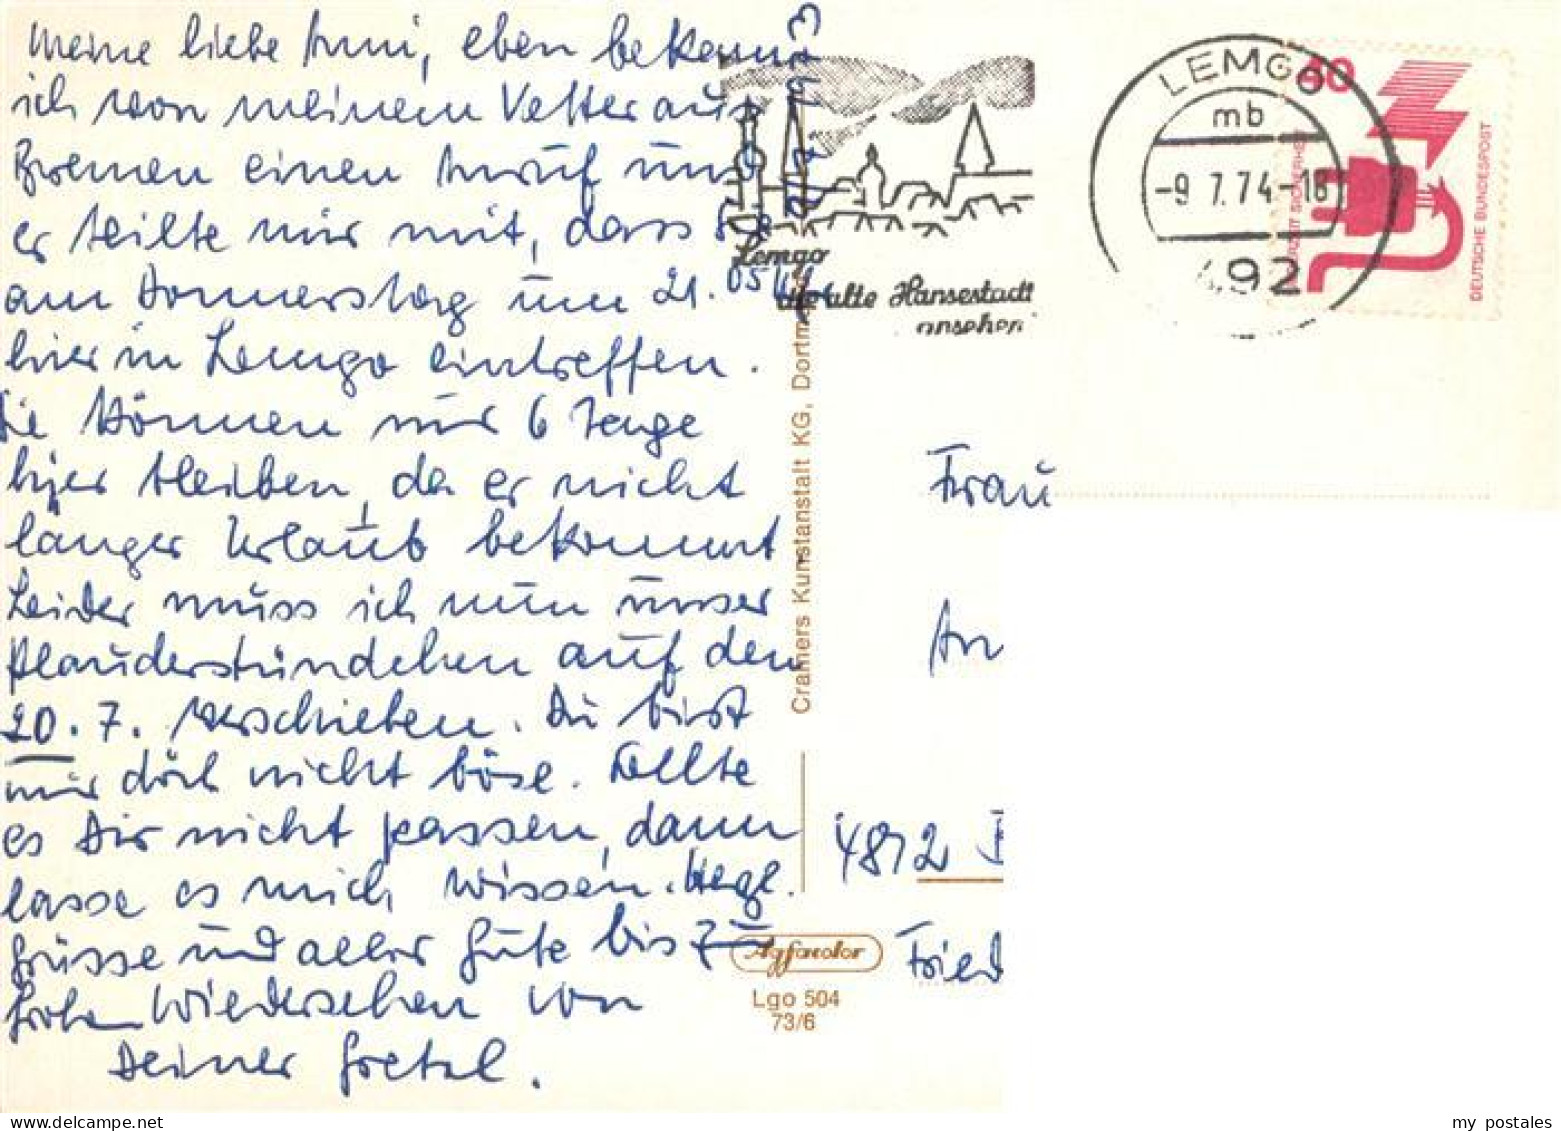 Meine liebe Anni, eben bekam
ich von meinem Vetter aus
Bremen einen Anruf und
er teilte mir mit, dass
am Donnerstag um 21.05 Uhr
hier in Lemgo eintreffen.
Sie können nur 6 Tage
hier bleiben, da er nicht
länger Urlaub bekommt
Leider muss ich nun unser
Plauderstündchen auf den
20.7. verschieben. Du bist
mir doch nicht böse. Sollte
es Dir nicht passen, dann
lasse es mich wissen. Hrzl.
Grüsse und alles Gute bis zu
frohen Wiedersehen von
Deiner Gretel.
Lemgo
die alte Hansestadt
ansehen
LEMGO
mb
-9.7.74-16
492
60
DEUTSCHE BUNDESPOST
Cramers Kunstanstalt KG, Dortmund
Frau
An
4812
Fried
Agfacolor
Lgo 504
73/6
my postales